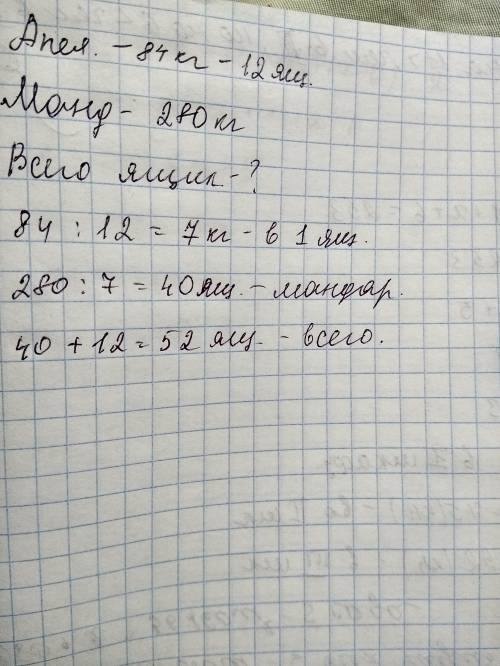 Апел. - 84 кг - 12 ящ.
Манд - 280 кг
Всего ящик - ?
84 : 12 = 7 кг - в 1 ящ.
280 : 7 = 40 ящ. - мандар.
40 + 12 = 52 ящ. - всего.